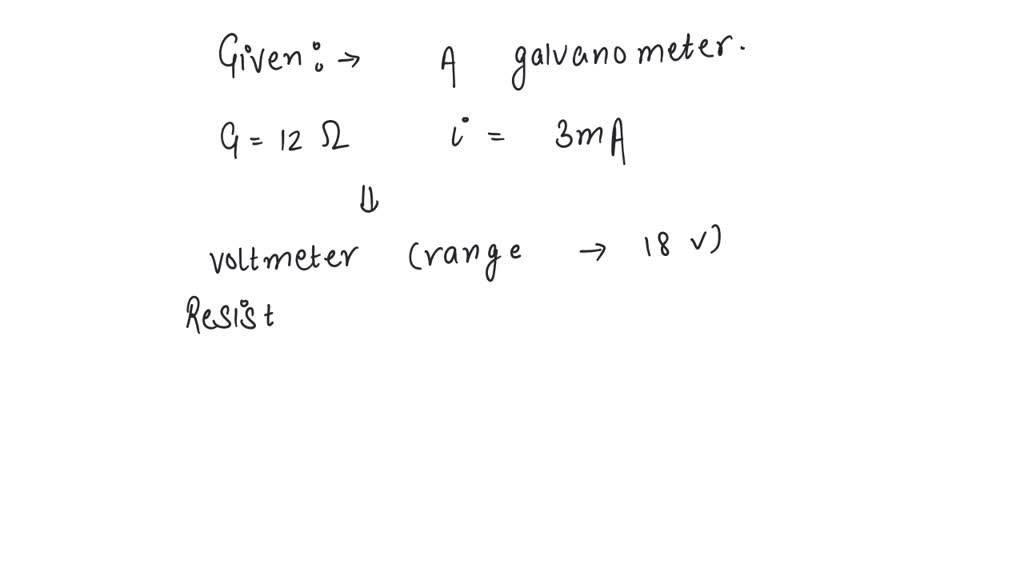 Given: → A galvanometer.
G = 12 Ω i = 3mA
⇓
voltmeter (range → 18 v)
Resist